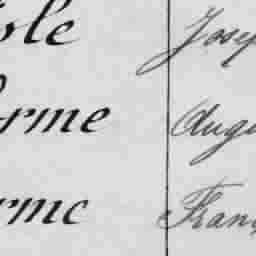 sle Josep
erme Augu
rme Franç